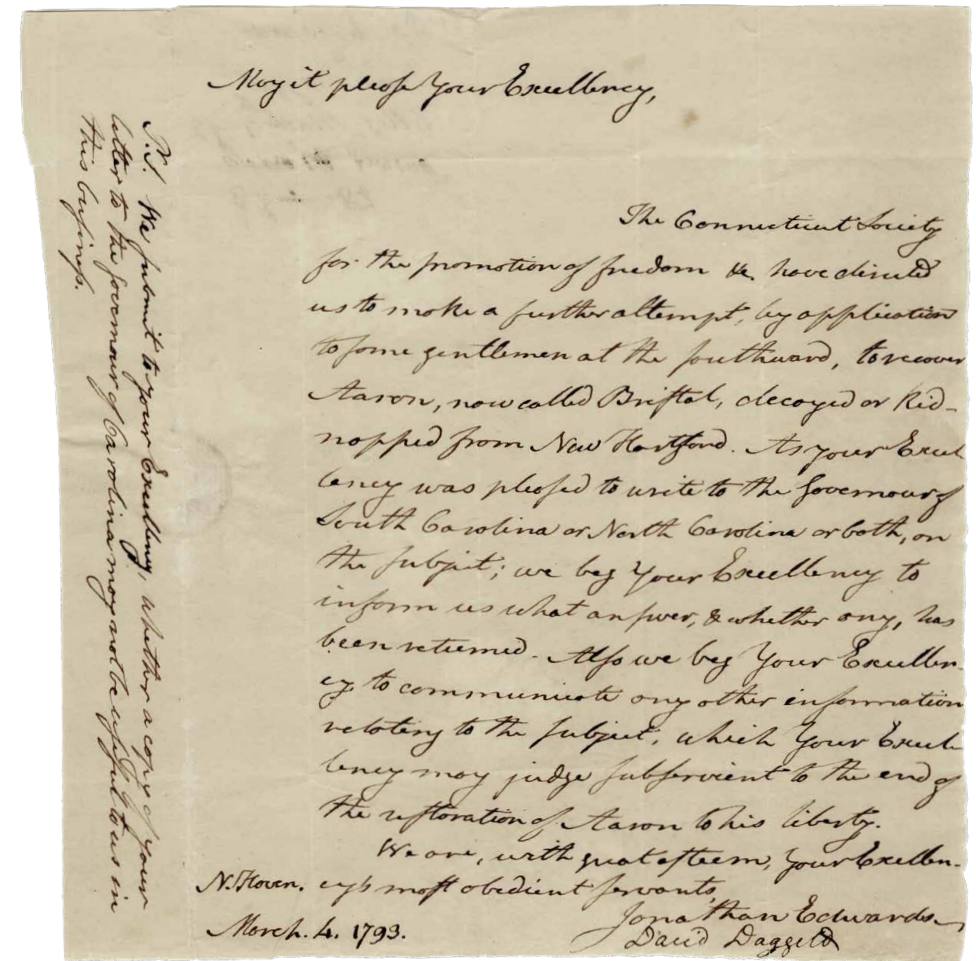 May it please Your Excellency,
The Connecticut Society
for the promotion of freedom &c. have directed
us to make a further attempt, by application
to some gentlemen at the southward, to recover
Aaron, now called Bristol, decoyed or kid-
napped from New Hartford. As your Excel
lency was pleased to write to the Governour of
South Carolina or North Carolina or both, on
the subject; we beg Your Excellency to
inform us what answer, & whether any, has
been returned. Also we beg Your Excellen-
cy to communicate any other information
relating to the subject, which Your Excel-
lency may judge subservient to the end of
the restoration of Aaron to his liberty.
We are, with great esteem, Your Excellen-
cy's most obedient servants,
Jonathan Edwards
David Daggett
N. Haven.
March. 4. 1793.
P.S. We submit to your Excellency, whether a copy of your
letter to the Governour of Carolina may not be useful to us in
this business.